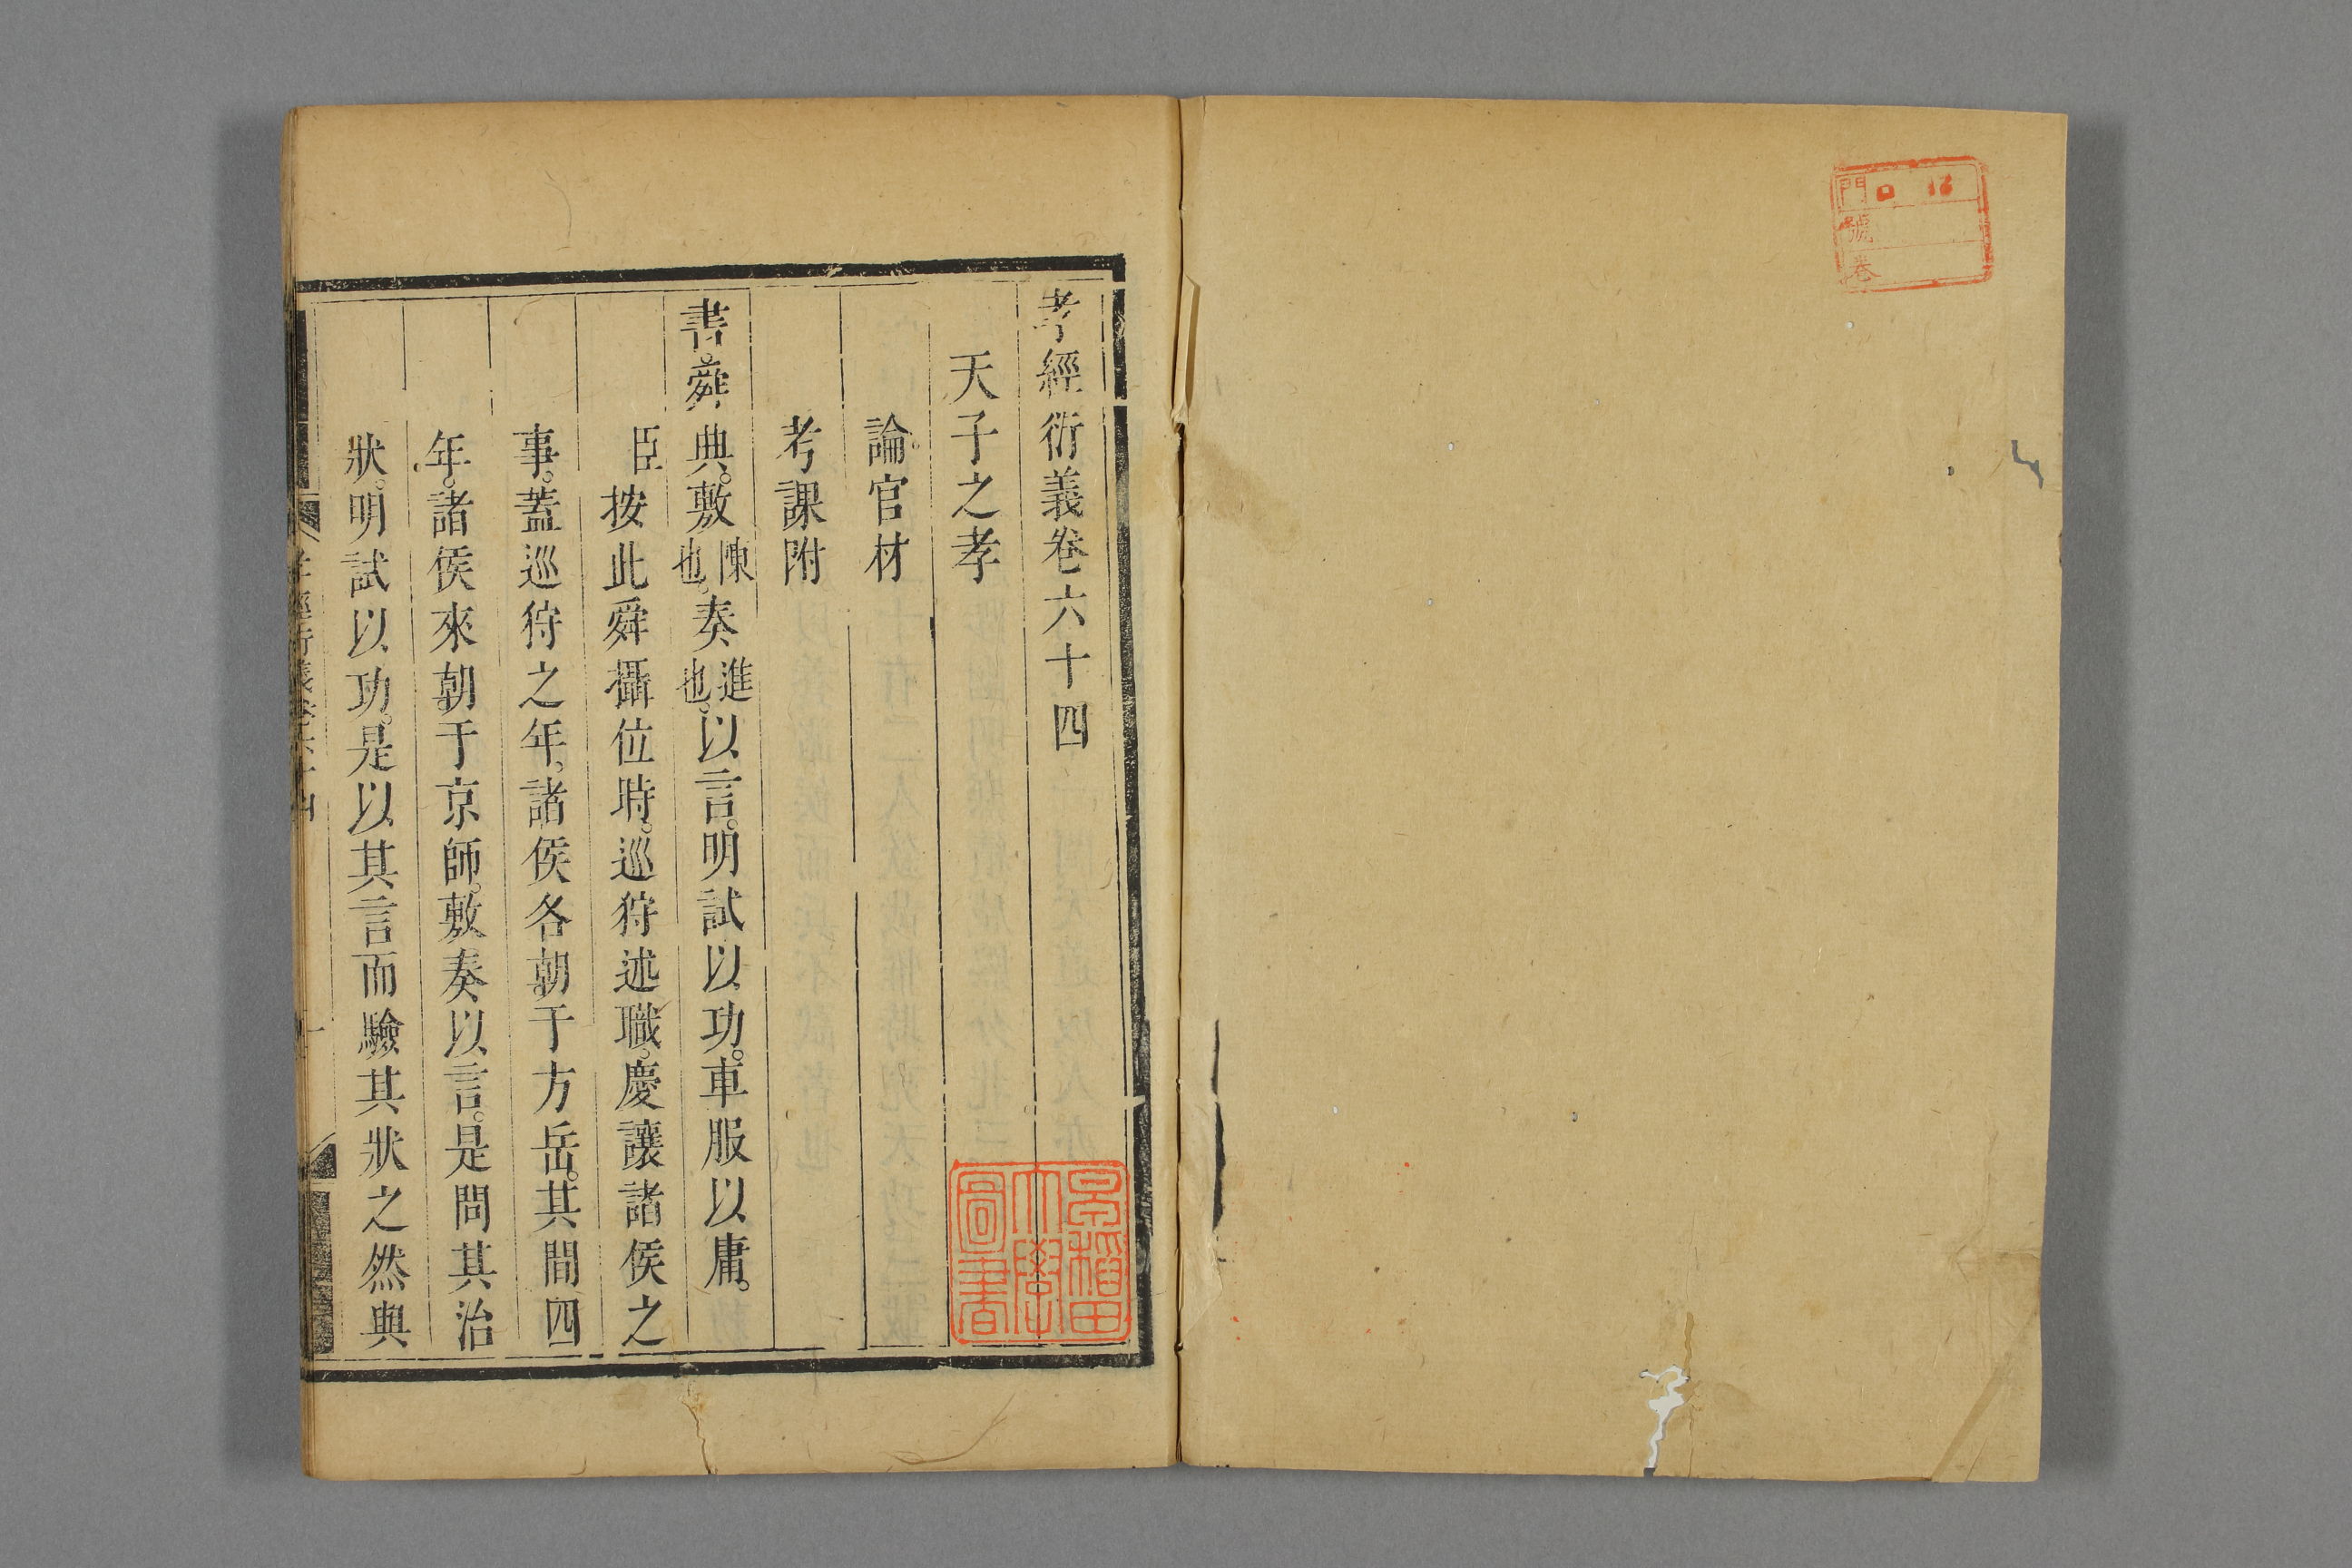 門 ロ 12
號
卷
孝經衍義卷六十四
天子之孝
論官材
考課附
書舜典敷陳也奏進也以言明試以功車服以庸
臣按此舜攝位時巡狩述職慶讓諸侯之
事蓋巡狩之年諸侯各朝于方岳其間四
年諸侯來朝于京師敷奏以言是問其治
狀明試以功是以其言而驗其狀之然與
孝經衍義卷六十四 一
早稻田
大學
圖書